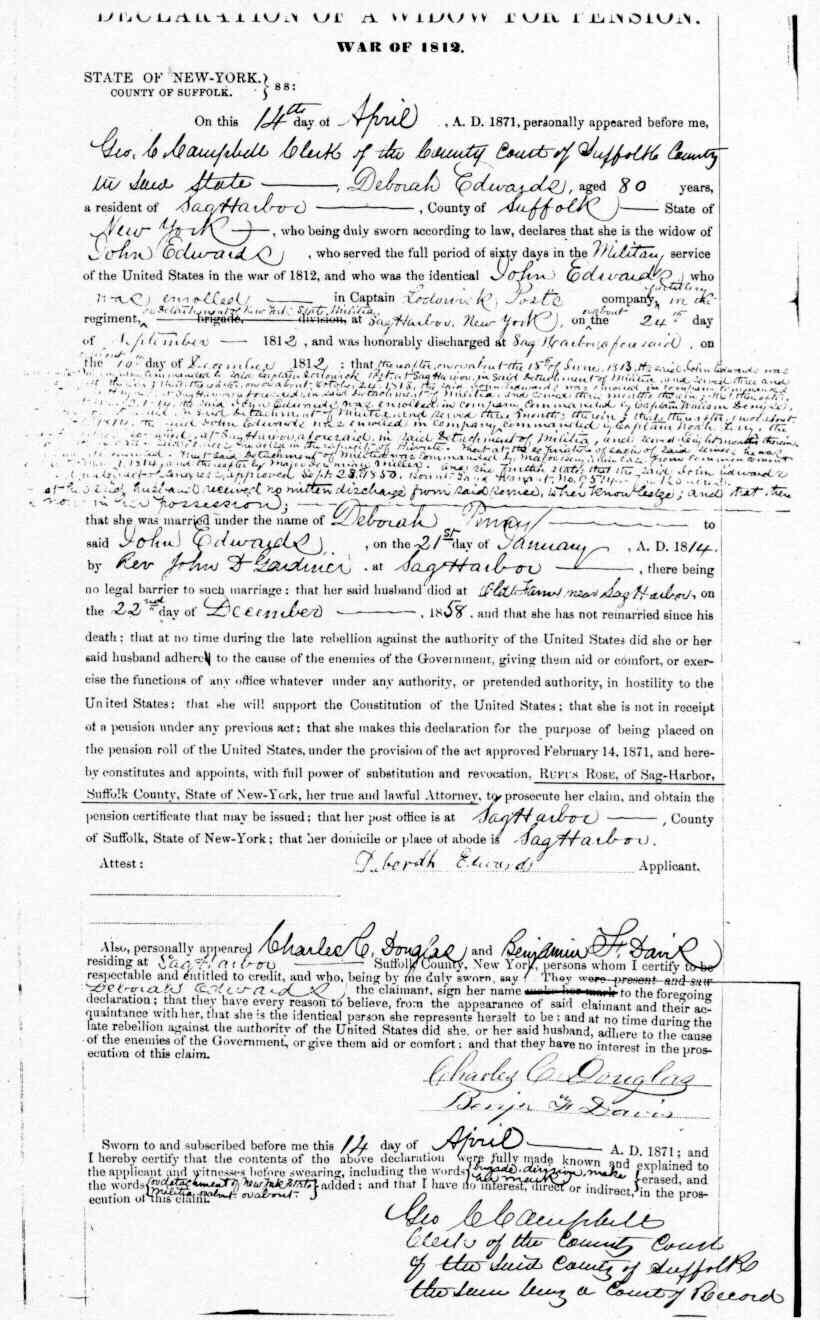 DECLARATION OF A WIDOW FOR PENSION.
WAR OF 1812.
STATE OF NEW-YORK. } ss:
COUNTY OF SUFFOLK.
On this 14th day of April, A. D. 1871, personally appeared before me,
Geo. C Campbell Clerk of the County Court of Suffolk County
in said State —, Deborah Edwards, aged 80 years,
a resident of Sag Harbor —, County of Suffolk — State of
New York —, who being duly sworn according to law, declares that she is the widow of
John Edwards, who served the full period of sixty days in the Military service
of the United States in the war of 1812, and who was the identical John Edwards who
was enrolled — in Captain Lodowick Posts company, in the
regiment, or Detachment of New York State Militia brigade, division, at Sag Harbor, New York, on the or about 24th day
of September — 1812, and was honorably discharged at Sag Harbor aforesaid, on
the 10th day of December 1812; that thereafter, on or about the 18th of June, 1813, the said John Edwards was
in said Detachment of Militia, and served three
the said John Edwards was enrolled in company commanded by Captain
in said Detachment of Militia and served three months therein; that thereafter, on or about
1814, the said John Edwards was enrolled in company commanded by Captain Noah Terry, the
at Sag Harbor aforesaid, in said Detachment of Militia, and served eight months therein
that said Detachment of Militia was commanded by Major
1814, and thereafter by Major Miller. And she further states that the said John Edwards
approved Sept. 28, 1850. Bounty Land Warrant, No.
her said husband received no written discharge from said service, to her knowledge; and that there
none in her possession;
that she was married under the name of Deborah — to
said John Edwards, on the 21st day of January —, A. D. 1814.
by Rev John D Gardiner, at Sag Harbor —, there being
no legal barrier to such marriage; that her said husband died at near Sag Harbor, on
the 22nd day of December —, 1858, and that she has not remarried since his
death; that at no time during the late rebellion against the authority of the United States did she or her
said husband adhere to the cause of the enemies of the Government, giving them aid or comfort, or exer-
cise the functions of any office whatever under any authority, or pretended authority, in hostility to the
United States; that she will support the Constitution of the United States; that she is not in receipt
of a pension under any previous act; that she makes this declaration for the purpose of being placed on
the pension roll of the United States, under the provision of the act approved February 14, 1871, and here-
by constitutes and appoints, with full power of substitution and revocation, RUFUS ROSE, of Sag-Harbor,
Suffolk County, State of New-York, her true and lawful Attorney, to prosecute her claim, and obtain the
pension certificate that may be issued; that her post office is at Sag Harbor —, County
of Suffolk, State of New-York; that her domicile or place of abode is Sag Harbor.
Attest: Deborah Edwards Applicant.
Also, personally appeared Charles C. Douglas and Benjamin F. Davis
residing at Sag Harbor — Suffolk County, New York, persons whom I certify to be
respectable and entitled to credit, and who, being by me duly sworn, say They were present and saw
Deborah Edwards the claimant, sign her name make her mark to the foregoing
declaration; that they have every reason to believe, from the appearance of said claimant and their ac-
quaintance with her, that she is the identical person she represents herself to be; and at no time during the
late rebellion against the authority of the United States did she, or her said husband, adhere to the cause
of the enemies of the Government, or give them aid or comfort; and that they have no interest in the pros-
ecution of this claim.
Charles C. Douglas
Benja F Davis
Sworn to and subscribed before me this 14 day of April — A. D. 1871; and
I hereby certify that the contents of the above declaration were fully made known and explained to
the applicant and witnesses before swearing, including the words { brigade, division, make her mark } erased, and
the words { or detachment of New York State Militia or about or about } added; and that I have no interest, direct or indirect, in the pros-
ecution of this claim.
Geo C Campbell
Clerk of the County Court
of the said County of Suffolk
the same being a Court of Record